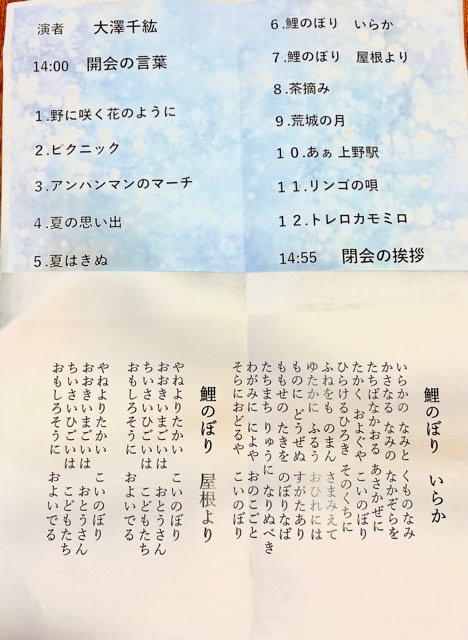 演者　大澤千紘
14:00　開会の言葉
1.野に咲く花のように
2.ピクニック
3.アンパンマンのマーチ
4.夏の思い出
5.夏はきぬ
6.鯉のぼり　いらか
7.鯉のぼり　屋根より
8.茶摘み
9.荒城の月
10.あぁ上野駅
11.リンゴの唄
12.トレロカモミロ
14:55　閉会の挨拶
鯉のぼり　いらか
いらかの なみと くものなみ
かさなる なみの なかぞらを
たちばなかおる あさかぜに
たかく およぐや こいのぼり
ひらけるひろき そのくちに
ふねをも のまん さまみえて
ゆたかに ふるう おひれには
ものに どうぜぬ すがたあり
ももせの たきを のぼりなば
たちまち りゅうに なりぬべき
わがみに によや おのこごと
そらにおどるや こいのぼり
鯉のぼり　屋根より
やねよりたかい　こいのぼり
おおきいまごいは　おとうさん
ちいさいひごいは　こどもたち
おもしろそうに　およいでる
やねよりたかい　こいのぼり
おおきいまごいは　おとうさん
ちいさいひごいは　こどもたち
おもしろそうに　およいでる